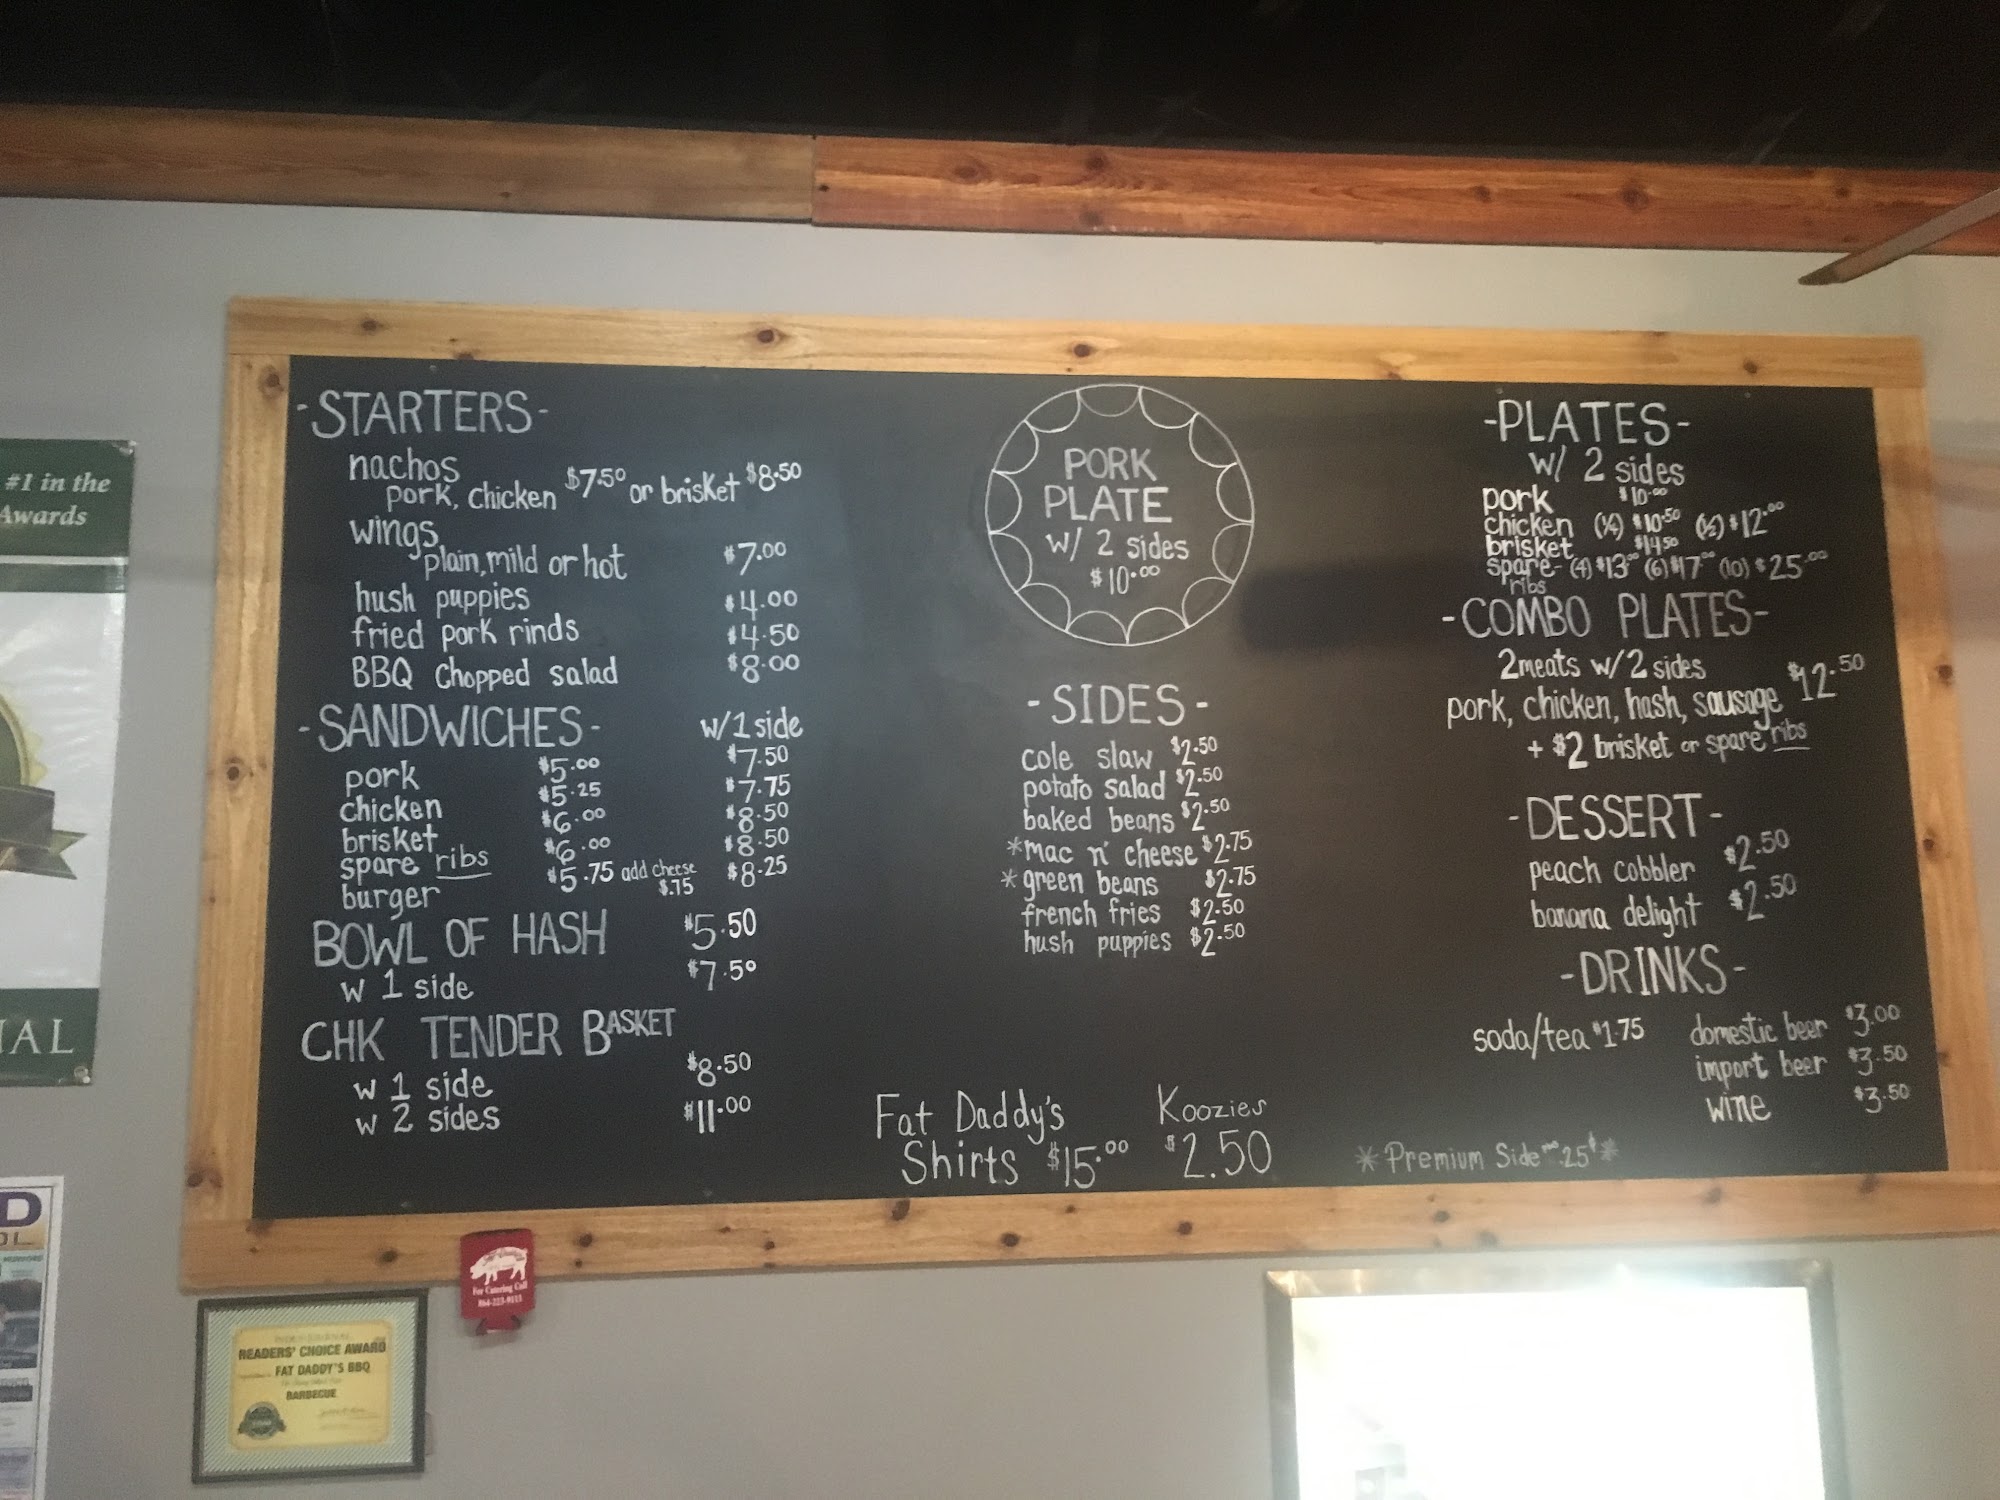 -STARTERS-
nachos
pork, chicken $7.50 or brisket $8.50
wings
plain, mild or hot $7.00
hush puppies $4.00
fried pork rinds $4.50
BBQ chopped salad $8.00
-SANDWICHES- w/1 side
pork $5.00 $7.50
chicken $5.25 $7.75
brisket $6.00 $8.50
spare ribs $6.00 $8.50
burger $5.75 add cheese $.75 $8.25
BOWL OF HASH $5.50
w 1 side $7.50
CHK TENDER BASKET
w 1 side $8.50
w 2 sides $11.00
PORK
PLATE
w/ 2 sides
$10.00
-SIDES-
cole slaw $2.50
potato salad $2.50
baked beans $2.50
*mac n' cheese $2.75
*green beans $2.75
french fries $2.50
hush puppies $2.50
Fat Daddy's
Shirts $15.00
Koozies
$2.50
-PLATES-
w/ 2 sides
pork $10.00
chicken (¼) $10.50 (½) $12.00
brisket $14.50
spare- (4) $13.00 (6) $17.00 (10) $25.00
ribs
-COMBO PLATES-
2 meats w/2 sides
pork, chicken, hash, sausage $12.50
+ $2 brisket or spare ribs
-DESSERT-
peach cobbler $2.50
banana delight $2.50
-DRINKS-
soda/tea $1.75 domestic beer $3.00
import beer $3.50
wine $3.50
*Premium Side .25¢*
#1 in the
Awards
IAL
D
For Catering Call
864-223-9111
READERS' CHOICE AWARD
FAT DADDY'S BBQ
BARBECUE